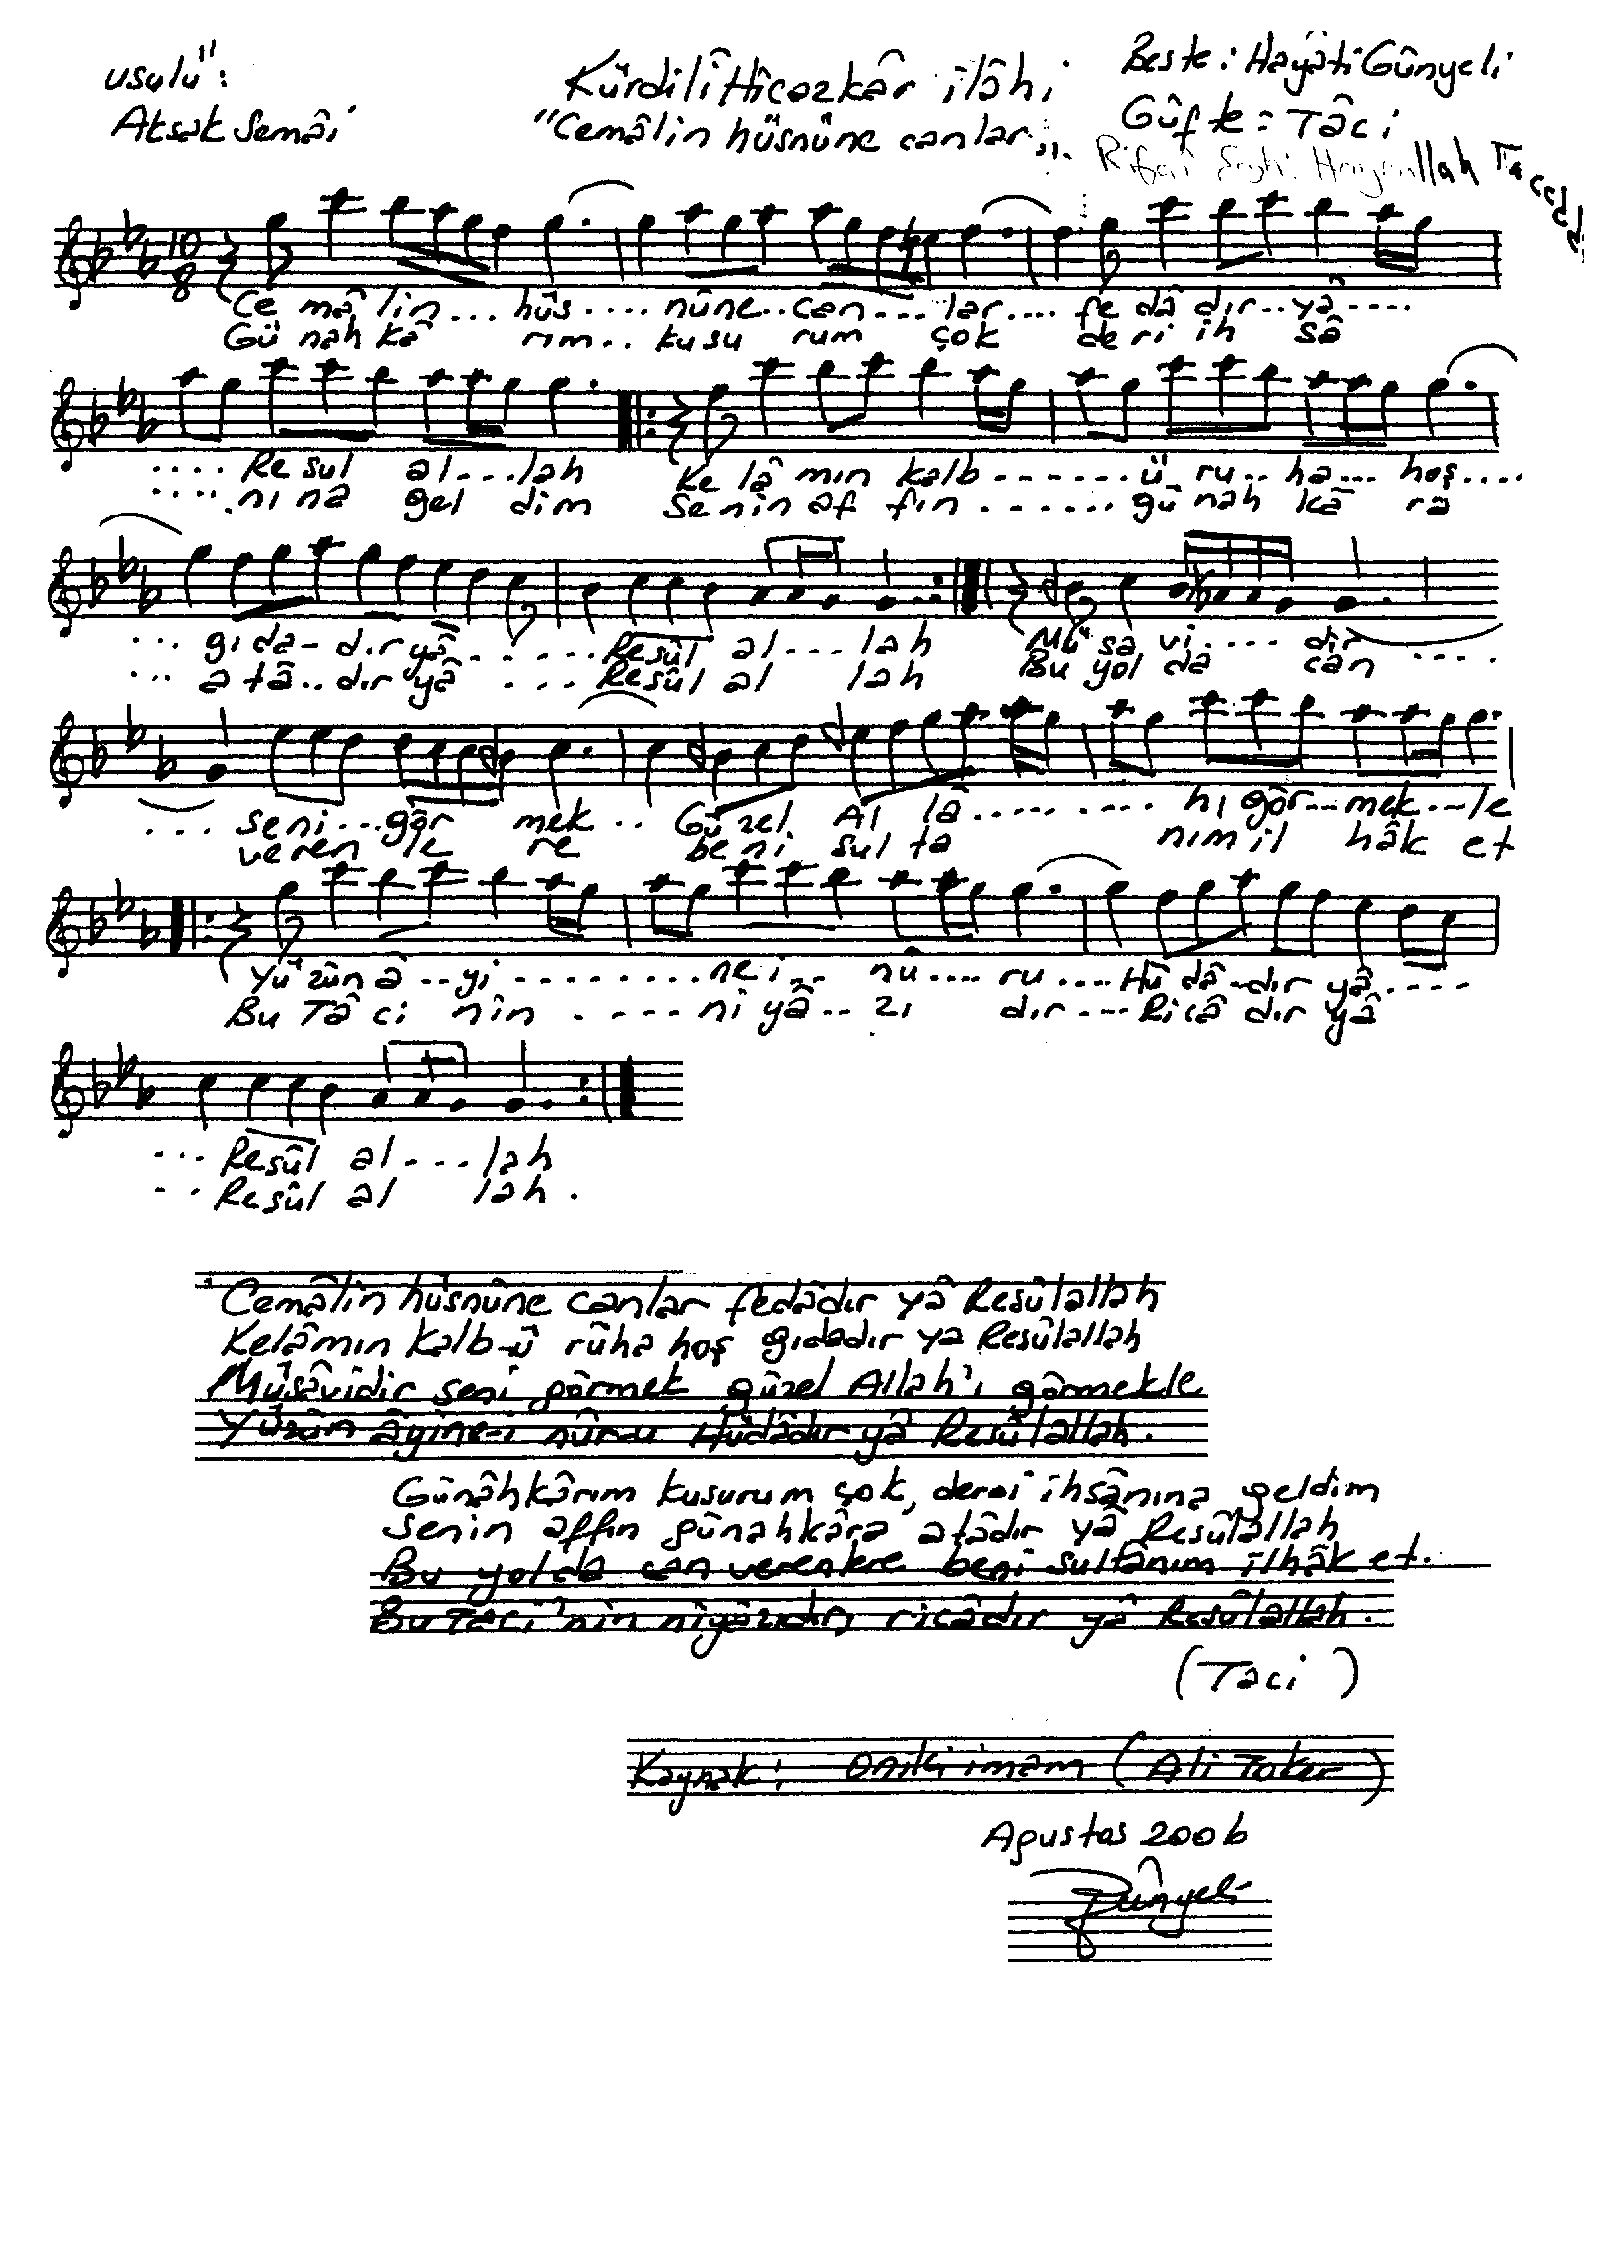 usulü:
Aksak Semâi
Kürdilî Hicazkâr ilâhi
"Cemâlin hüsnüne canlar..."
Beste: Hayâti Günyeli
Güfte: Tâci
10
8
Ce mâ lin... hüs.... nüne.. can... lar.... fe dâ dır.. yâ....
Gü nah kâ rım.. kusu rum çok deri ih sâ
.... Re sul al...lah Ke lâ mın kalb ....... ü ru.. ha... hoş....
.... ni na gel dim Senin af fın ....... gü nah kâ ra
... gı da - dır yâ ...... Resûl al... lah Mü sa vi.... dir
... a tâ.. dır yâ .... Resûl al lah Bu yol da can ....
... seni... gör mek.. Güzel Al lâ......... hı gör--mek--le
veren le re beni sul ta nım il hâk et
Yü zün â--yi.........ne i.. nû.... ru .... Hü dâ-dır yâ.....
Bu Tâ ci nin ..... ni yâ.. zı dır....Ricâ dır yâ
... Resûl al...lah
.. Resûl al lah.
Cemâlin hüsnüne canlar fedâdır yâ Resûlallah
Kelâmın kalb-ü rûha hoş gıdadır ya Resûlallah
Müsâvidir seni görmek güzel Allah'ı görmekle
Yüzün âyine-i nûr-u Hüdâdır yâ Resûlallah.
Günâhkârım kusurum çok, der-i ihsânına geldim
Senin affın günahkâra atâdır yâ Resûlallah
Bu yolda can verenlere beni sultânım ilhâk et.
Bu Tâci'nin niyâzıdır, ricâdır yâ Resûlallah.
(Taci)
Kaynak: Oniki imam (Ali Toker)
Agustos 2006
Günyeli